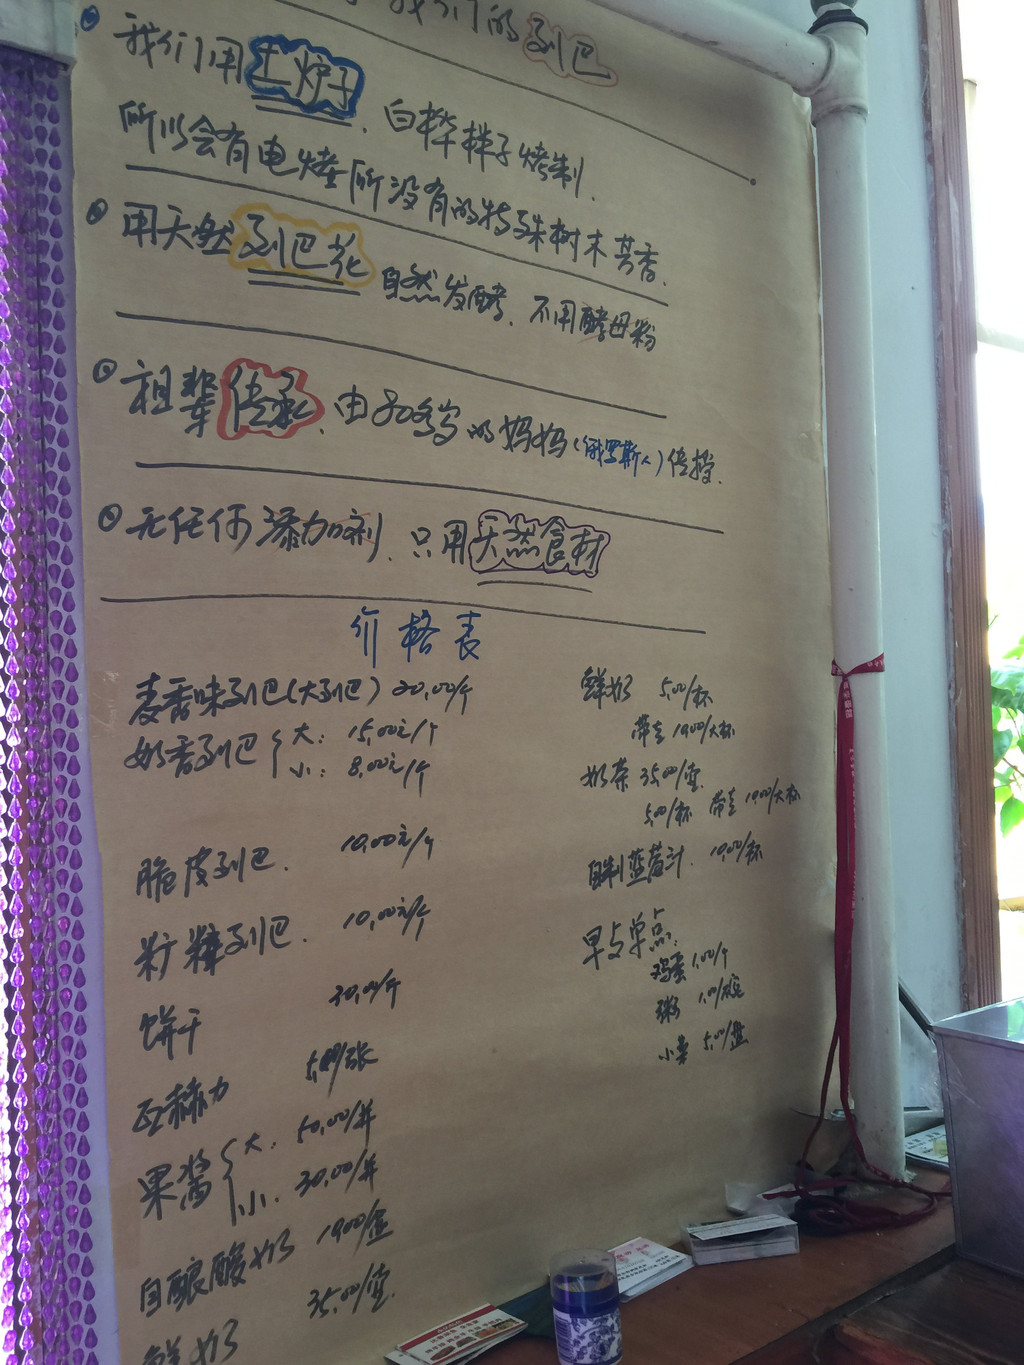 我们的列巴
我们用土炉子、白桦柈子烤制.
所以会有电烤所没有的特殊树木芳香.
用天然列巴花 自然发酵、不用酵母粉
祖辈传承、由80多岁的妈妈(俄罗斯人)传授.
无任何添加剂、只用天然食材
价格表
麦香味列巴(大列巴) 20,00/个
奶香列巴 大: 15,00元/个
小: 8,00元/个
脆皮列巴. 10,00元/个
列巴. 10,00元/个
饼干 30,00/斤
瓦赫力 5,00/张
果酱 大. 50,00/瓶
小. 30,00/瓶
自酿酸奶 10,00/盒
鲜奶 35,00/壶.
鲜奶 5,00/杯
带走 10,00/大杯
奶茶 35,00/壶.
5,00/杯 带走 10,00/大杯
自制蓝莓汁. 10,00/杯
早点
鸡蛋 1,00/个
粥 1,00/碗
小菜 5,00/盘